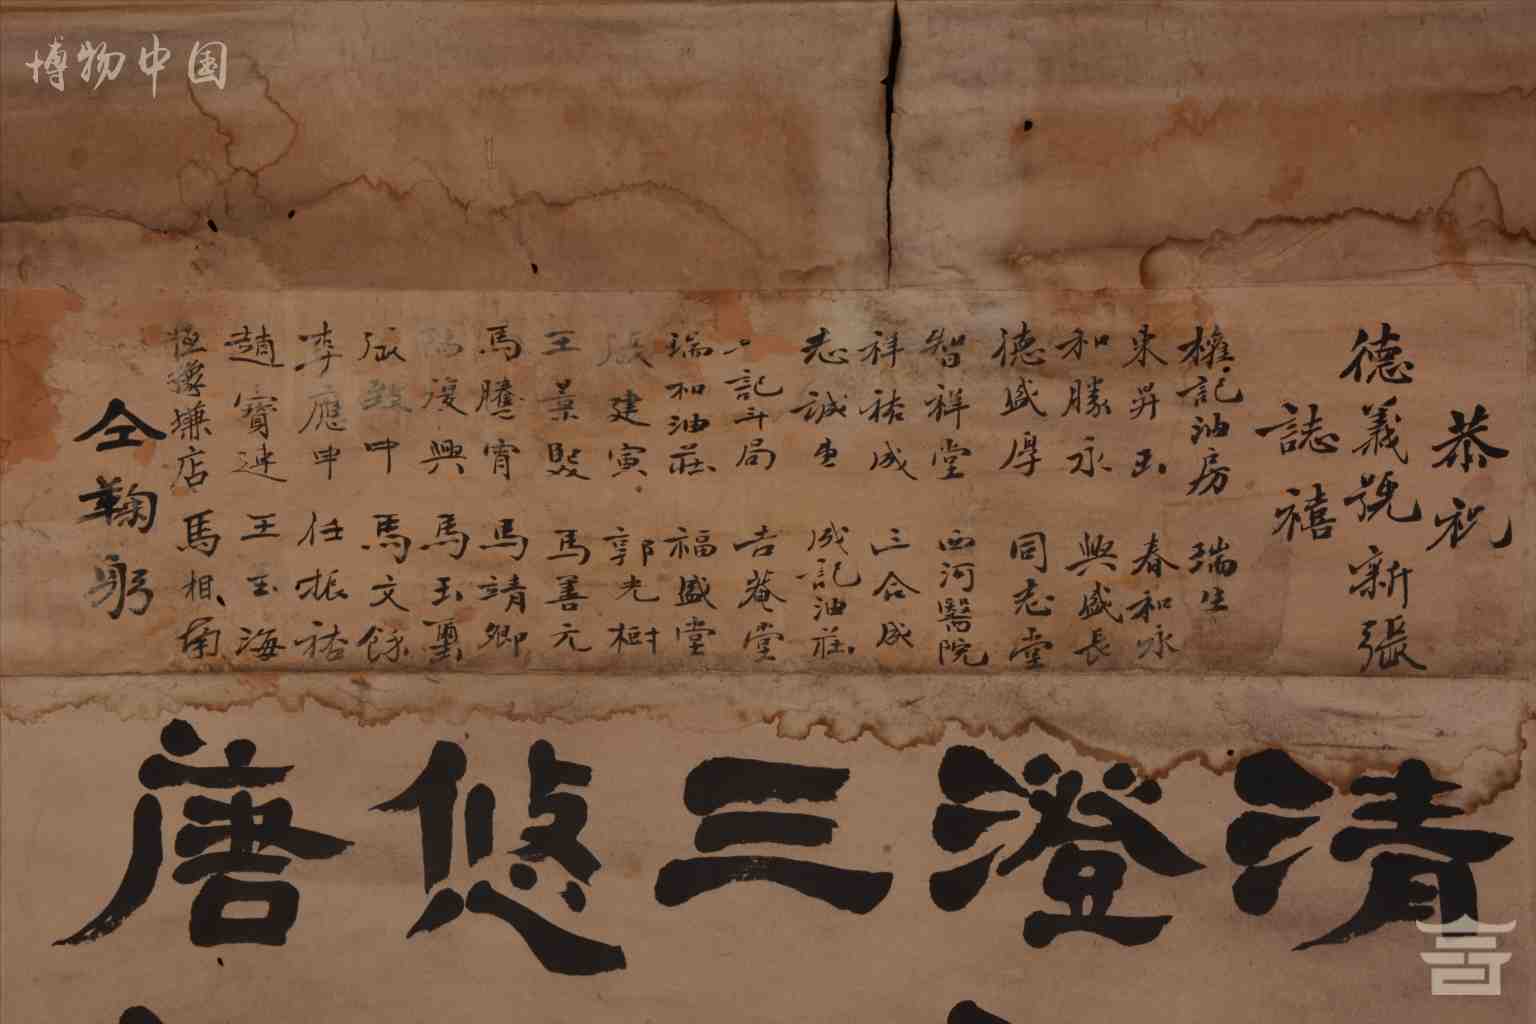 博物中国
恭祝
德義號新張
誌禧
權記油房 瑞生
東昇玉 春和永
和勝永 興盛長
德盛厚 同志堂
智祥堂 西河醫院
祥祐成 三合成
志誠 成記油莊
記斗局 吉菴堂
瑞和油莊 福盛堂
張建寅 郭光樹
王景 馬善元
馬騰霄 馬靖卿
復興 馬玉璽
張致中 馬文餘
李應申 任振祐
趙寶連 王玉海
店 馬相南
仝鞠躬
清澄三悠唐